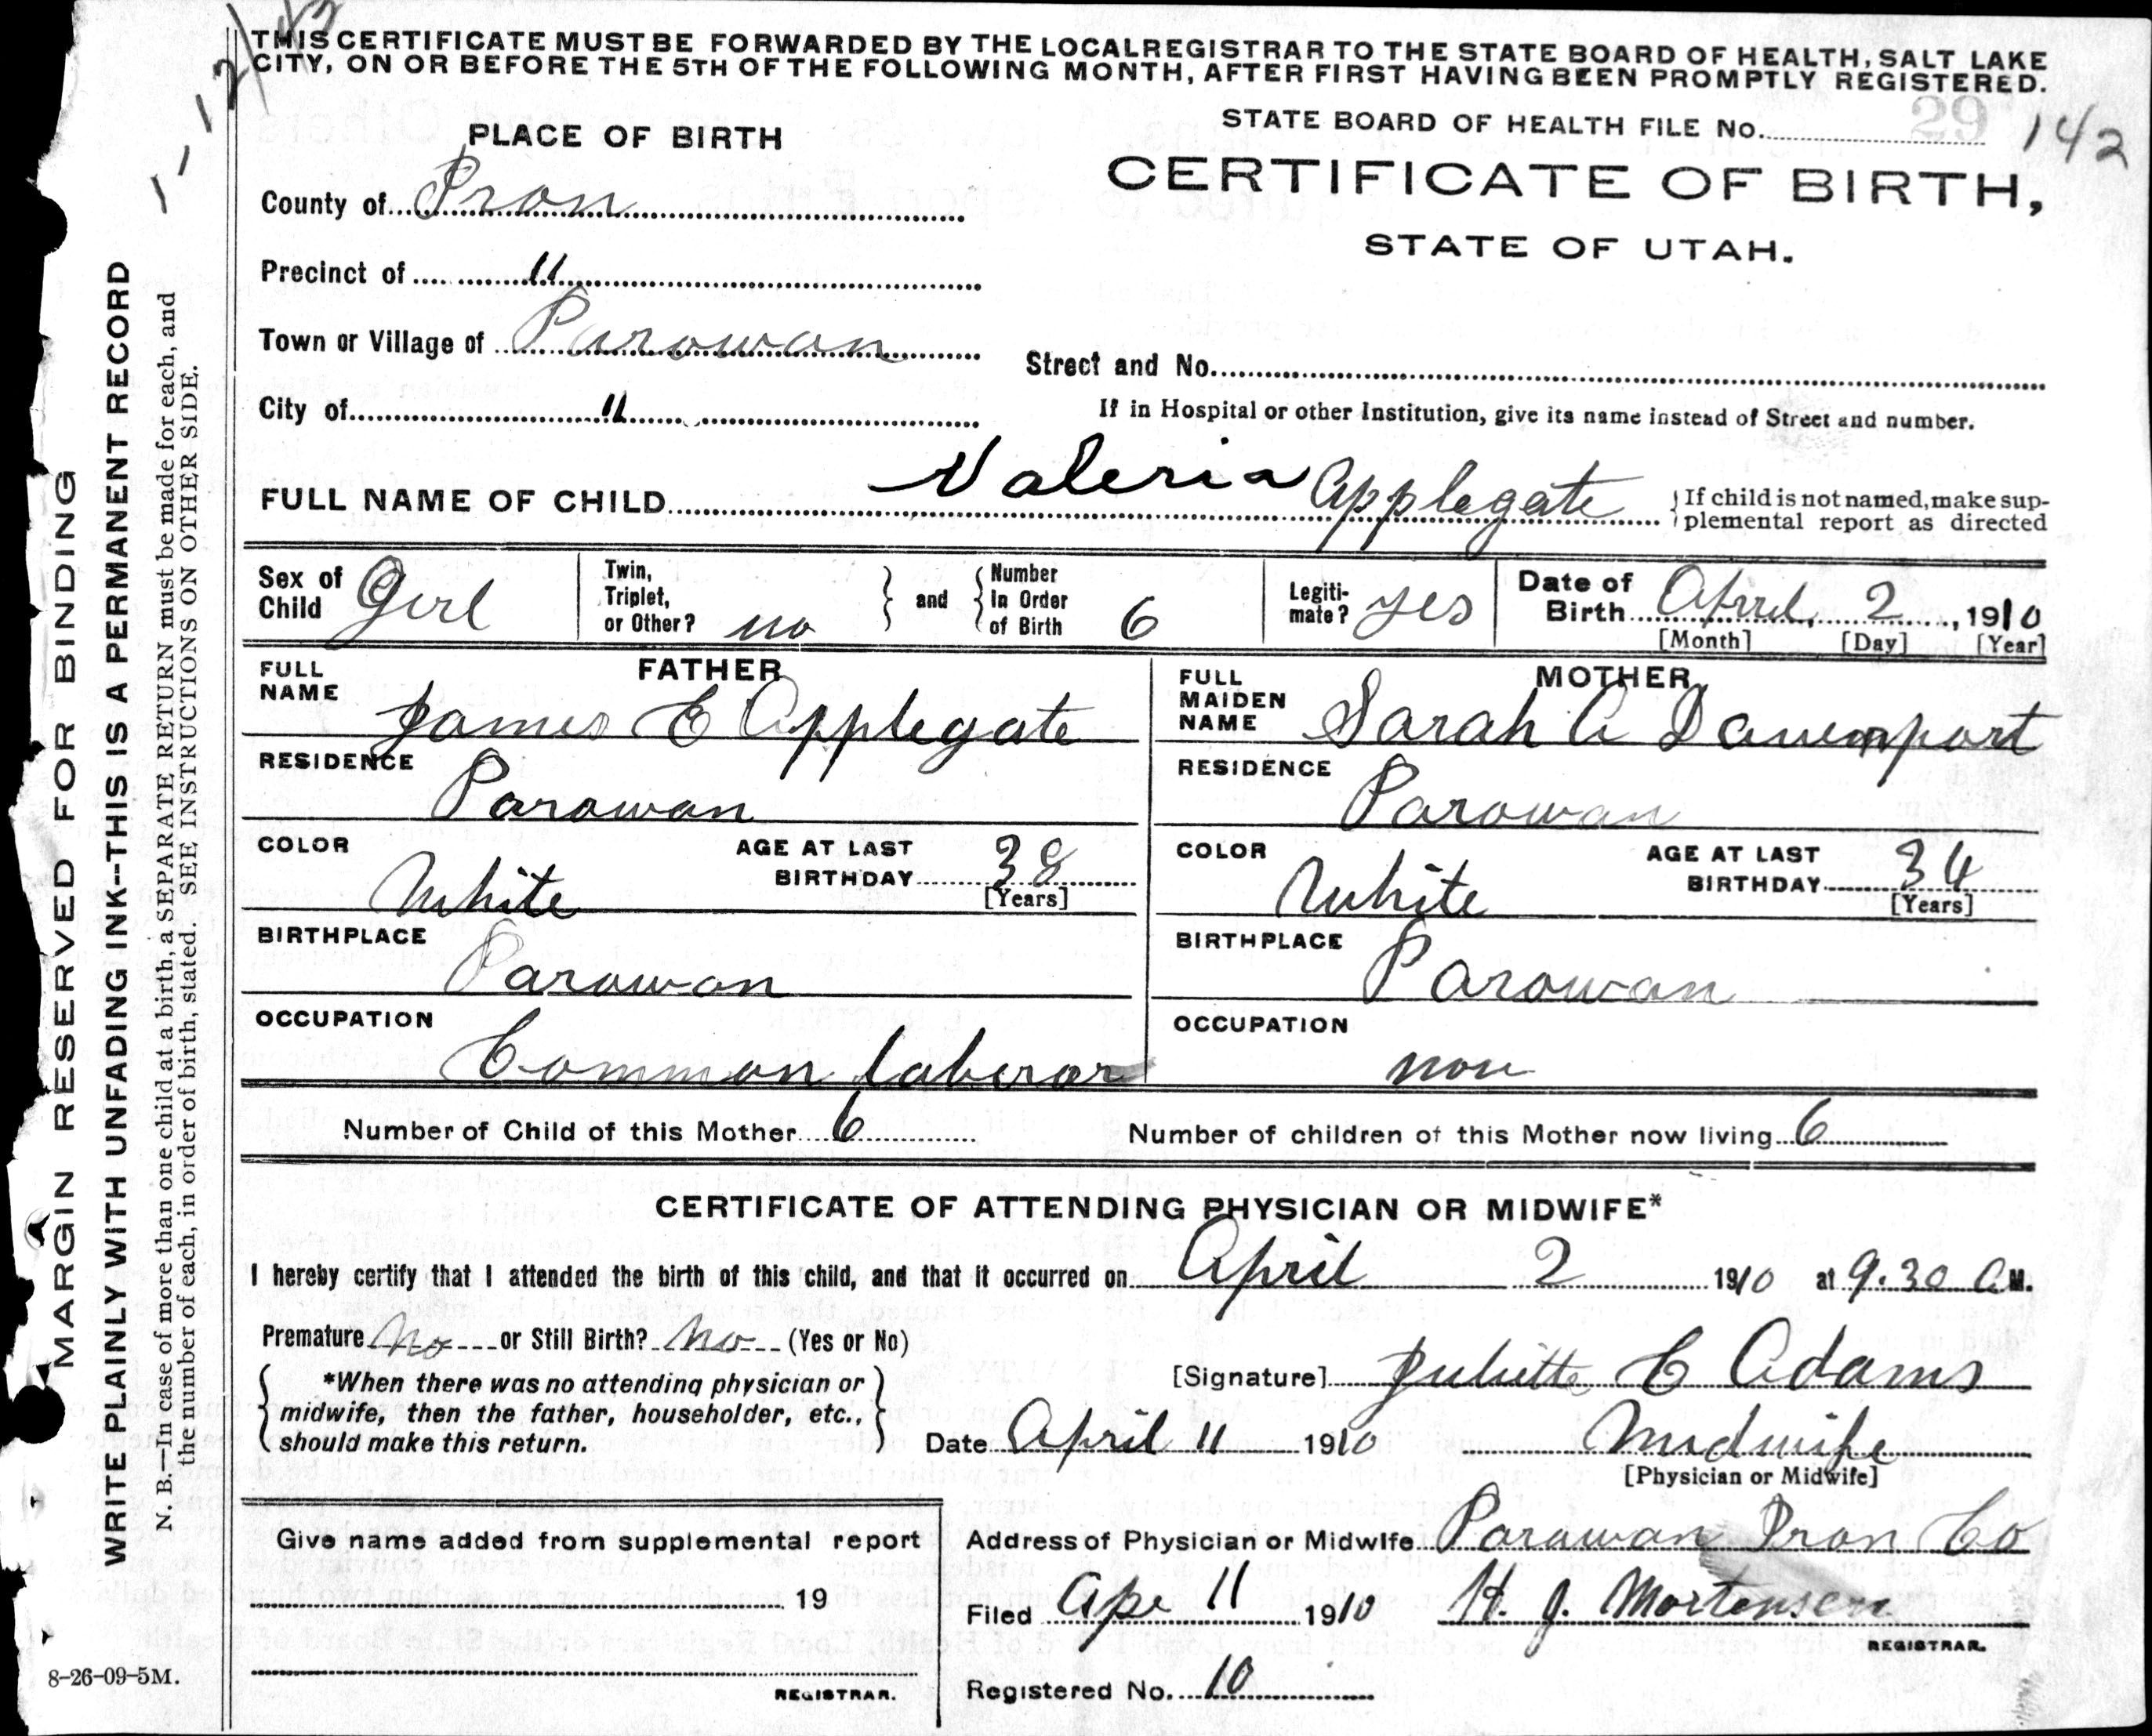 THIS CERTIFICATE MUST BE FORWARDED BY THE LOCAL REGISTRAR TO THE STATE BOARD OF HEALTH, SALT LAKE
CITY, ON OR BEFORE THE 5TH OF THE FOLLOWING MONTH, AFTER FIRST HAVING BEEN PROMPTLY REGISTERED.
STATE BOARD OF HEALTH FILE No. 29 142
PLACE OF BIRTH
CERTIFICATE OF BIRTH,
STATE OF UTAH.
County of Iron
Precinct of 11
Town or Village of Parowan
Street and No.
City of 11
If in Hospital or other Institution, give its name instead of Street and number.
FULL NAME OF CHILD Valeria Applegate
If child is not named, make sup-
plemental report as directed
Sex of Child Girl
Twin, Triplet, or Other? no
and
Number In Order of Birth 6
Legiti-mate? yes
Date of Birth April, 2, 1910
[Month] [Day] [Year]
FATHER
FULL NAME James E Applegate
RESIDENCE Parowan
COLOR White
AGE AT LAST BIRTHDAY 38
[Years]
BIRTHPLACE Parowan
OCCUPATION Common laborar
MOTHER
FULL MAIDEN NAME Sarah A Davenport
RESIDENCE Parowan
COLOR White
AGE AT LAST BIRTHDAY 34
[Years]
BIRTHPLACE Parowan
OCCUPATION non
Number of Child of this Mother 6
Number of children of this Mother now living 6
CERTIFICATE OF ATTENDING PHYSICIAN OR MIDWIFE*
I hereby certify that I attended the birth of this child, and that it occurred on April 2 1910 at 9.30 A M.
Premature No or Still Birth? No (Yes or No)
*When there was no attending physician or
midwife, then the father, householder, etc.,
should make this return.
[Signature] Juliette C Adams
Date April 11 1910 Midwife
[Physician or Midwife]
Give name added from supplemental report
19
REGISTRAR.
Address of Physician or Midwife Parowan Iron Co
Filed Apr 11 1910 H. J. Mortensen
REGISTRAR.
Registered No. 10
MARGIN RESERVED FOR BINDING
WRITE PLAINLY WITH UNFADING INK--THIS IS A PERMANENT RECORD
N. B.—In case of more than one child at a birth, a SEPARATE RETURN must be made for each, and
the number of each, in order of birth, stated. SEE INSTRUCTIONS ON OTHER SIDE.
8-26-09-5M.